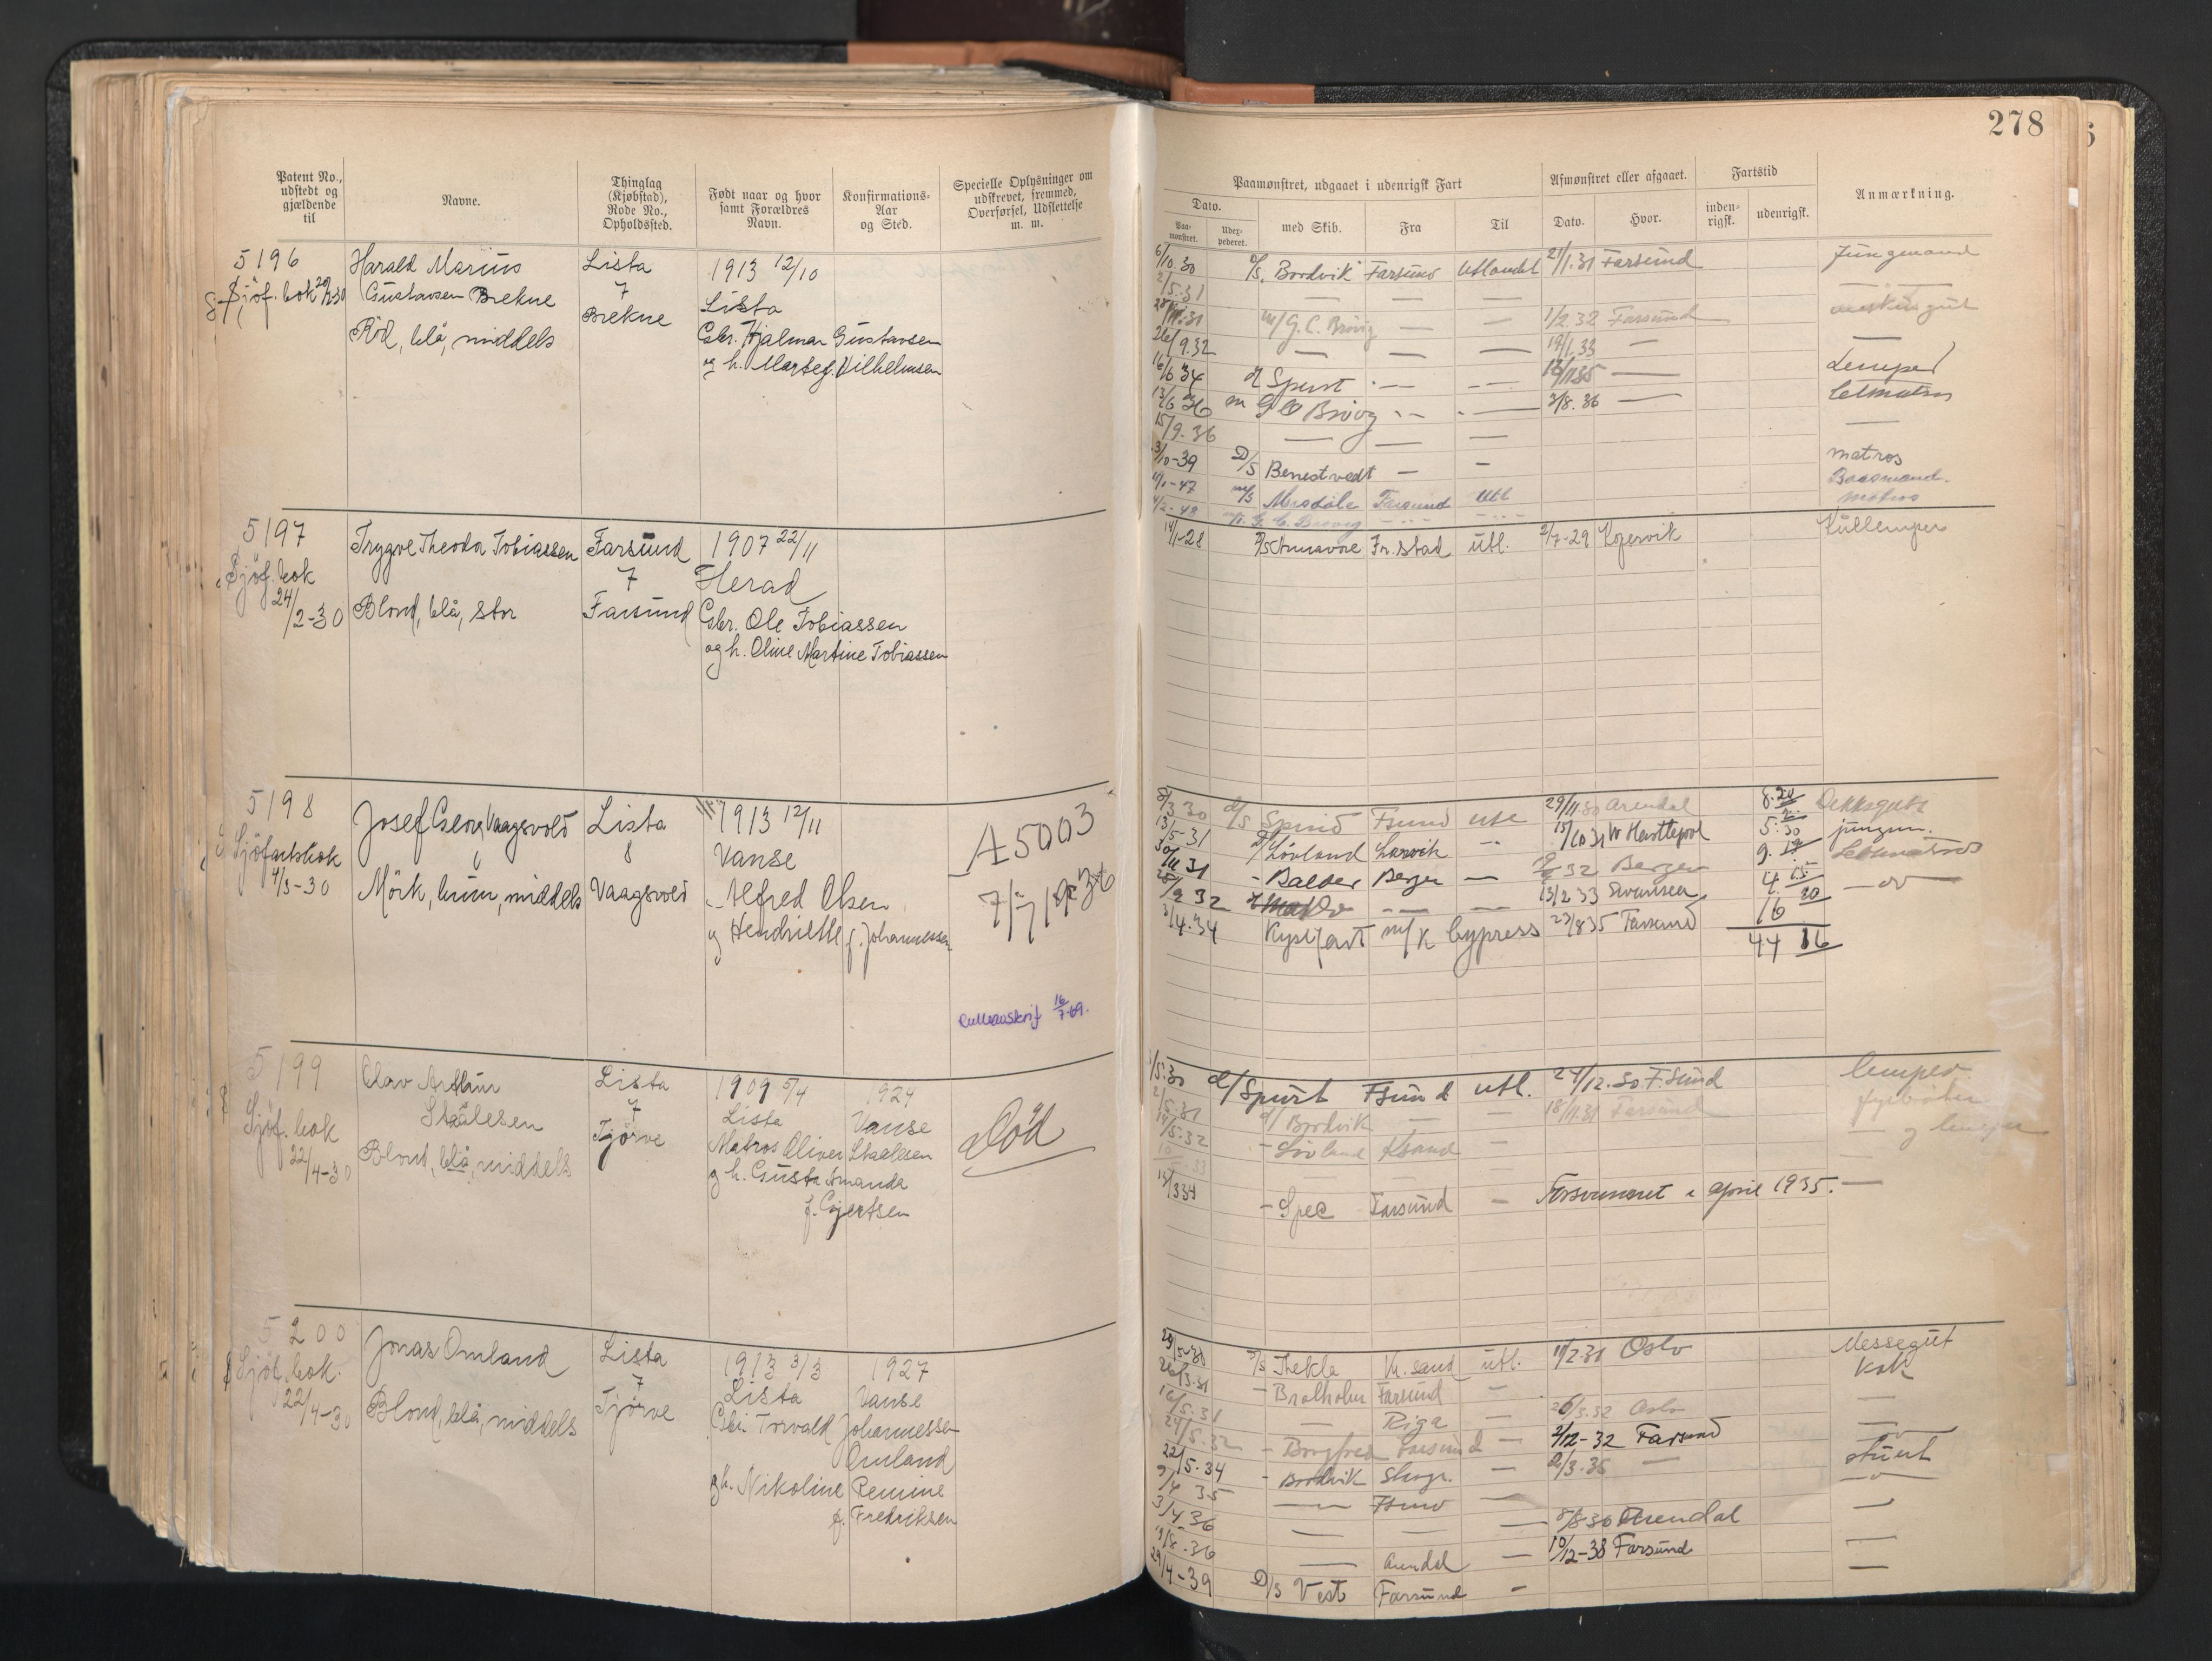 278
Patent No.,
udstedt og
gjældende
til
Navne.
Thinglag
(Kjøbstad),
Rode No.,
Opholdssted.
Født naar og hvor
samt Forældres
Navn.
Konfirmations-
Aar
og Sted.
Specielle Oplysninger om
udskrevet, fremmed,
Overførsel, Udslettelse
m. m.
Paamønstret, udgaaet i udenrigsk Fart
Afmønstret eller afgaaet.
Fartstid
Anmærkning.
Dato.
Paa-
mønstret.
Udex-
pederet.
med Skib.
Fra
Til
Dato.
Hvor.
inden-
rigsk.
udenrigsk.
5196
Sjöf. bok
Harald Marius
Gustavsen Brekne
Röd, blå, middels
Lista
7
Brekne
1913 12/10
Lista
Gbr. Hjalmar Gustavsen
og h. Marte f. Vilhelmsen
6/10.30 D/S Bordvik Farsund Utlandet 21/1.31 Farsund Jungmand
2/5.31 — — —
28/11.31 m/ G.C. Brövig — — 1/2 32 Farsund
26/9.32 — — — 19/1.33 — —
16/6 34 d/ Spurt — — — Lemper
13/6 36 m G C Brövig — — 3/8.36 — Letmatros
15/9.36 — — — —
3/10-39 D/S Benestvedt — — matros
m/s Mosdale Farsund Utl Baadsmand
G. C. Brövig matros
5197
Sjöf. bok
24/2-30
Trygve Theodor Tobiassen
Blond, blå, stor
Farsund
7
Farsund
1907 22/11
Herad
Gbr. Ole Tobiassen
og h. Oline Martine Tobiassen
14/1-28 Fr.stad utl. 2/7-29 Kopervik Kullemper
5198
Sjöfartsbok
4/3-30
Josef Georg Vaagsvold
Mörk, brun, middels
Lista
8
Vaagsvold
1913 12/11
Vanse
Alfred Olsen
og Hendriette f. Johannessen
A 5003
Rulleavskrif 16/7-69.
8/3 30 d/s Spind Fsund utl 29/11.30 Arendal 8. 20 Dekksgutt
13/5-31 D/ Lövland Larvik — 15/10 31 W Hartlepool 5. jungm.
30/11 31 - Balder Bergen — 32 Bergen 9. Letmatros
28/9 32 — — 13/2 33 Swansea 4. 15 — do —
3/4.34 Kystfart m/k Cypress 23/8 35 Farsund 16 20
44 16
5199
Sjöf. bok
22/4-30
Olav Arthur
Stålesen
Blond, blå, middels
Lista
7
Tjörve
1909 5/4
Lista
Matros Oliver Staalesen
og h. Gusta Amanda
f. Gjertsen
1924
Vanse
Död
1/5.30 d/ Spurt Fsund utl. 24/12.30 F.sund lemper
2/5.31 d/ Bordvik — — 18/11.31 Farsund fyrböter
14/5.32 - Lövland Ksand — — og lemper
13/3 34 - Spec Farsund — Forsvunnet i april 1935. —
5200
Sjöf. bok.
22/4-30
Jonas Omland
Blond, blå, middels
Lista
7
Tjörve
1913 3/3
Lista
Gbr. Torvald Johannessen
Omland
og h. Nikoline Pernine
f. Fredriksen
1927
Vanse
D/S Thekla Kr.sand utl. 11/2.31 Oslo Messegut
26/3.31 - Bratholm Farsund — Kok
16/5.31 — Riga — 26/3.32 Oslo —
24/5.32 - Borgfred Farsund — 2/12-32 Farsund —
22/5.34 - Bordvik — 2/3.35 — stuert
9/4 35 — Fsund — —
3/4.36 — — — 8/8.36 Arendal —
19/8.36 — Arendal — 10/12-38 Farsund —
29/4-39 D/S Vest Farsund — —